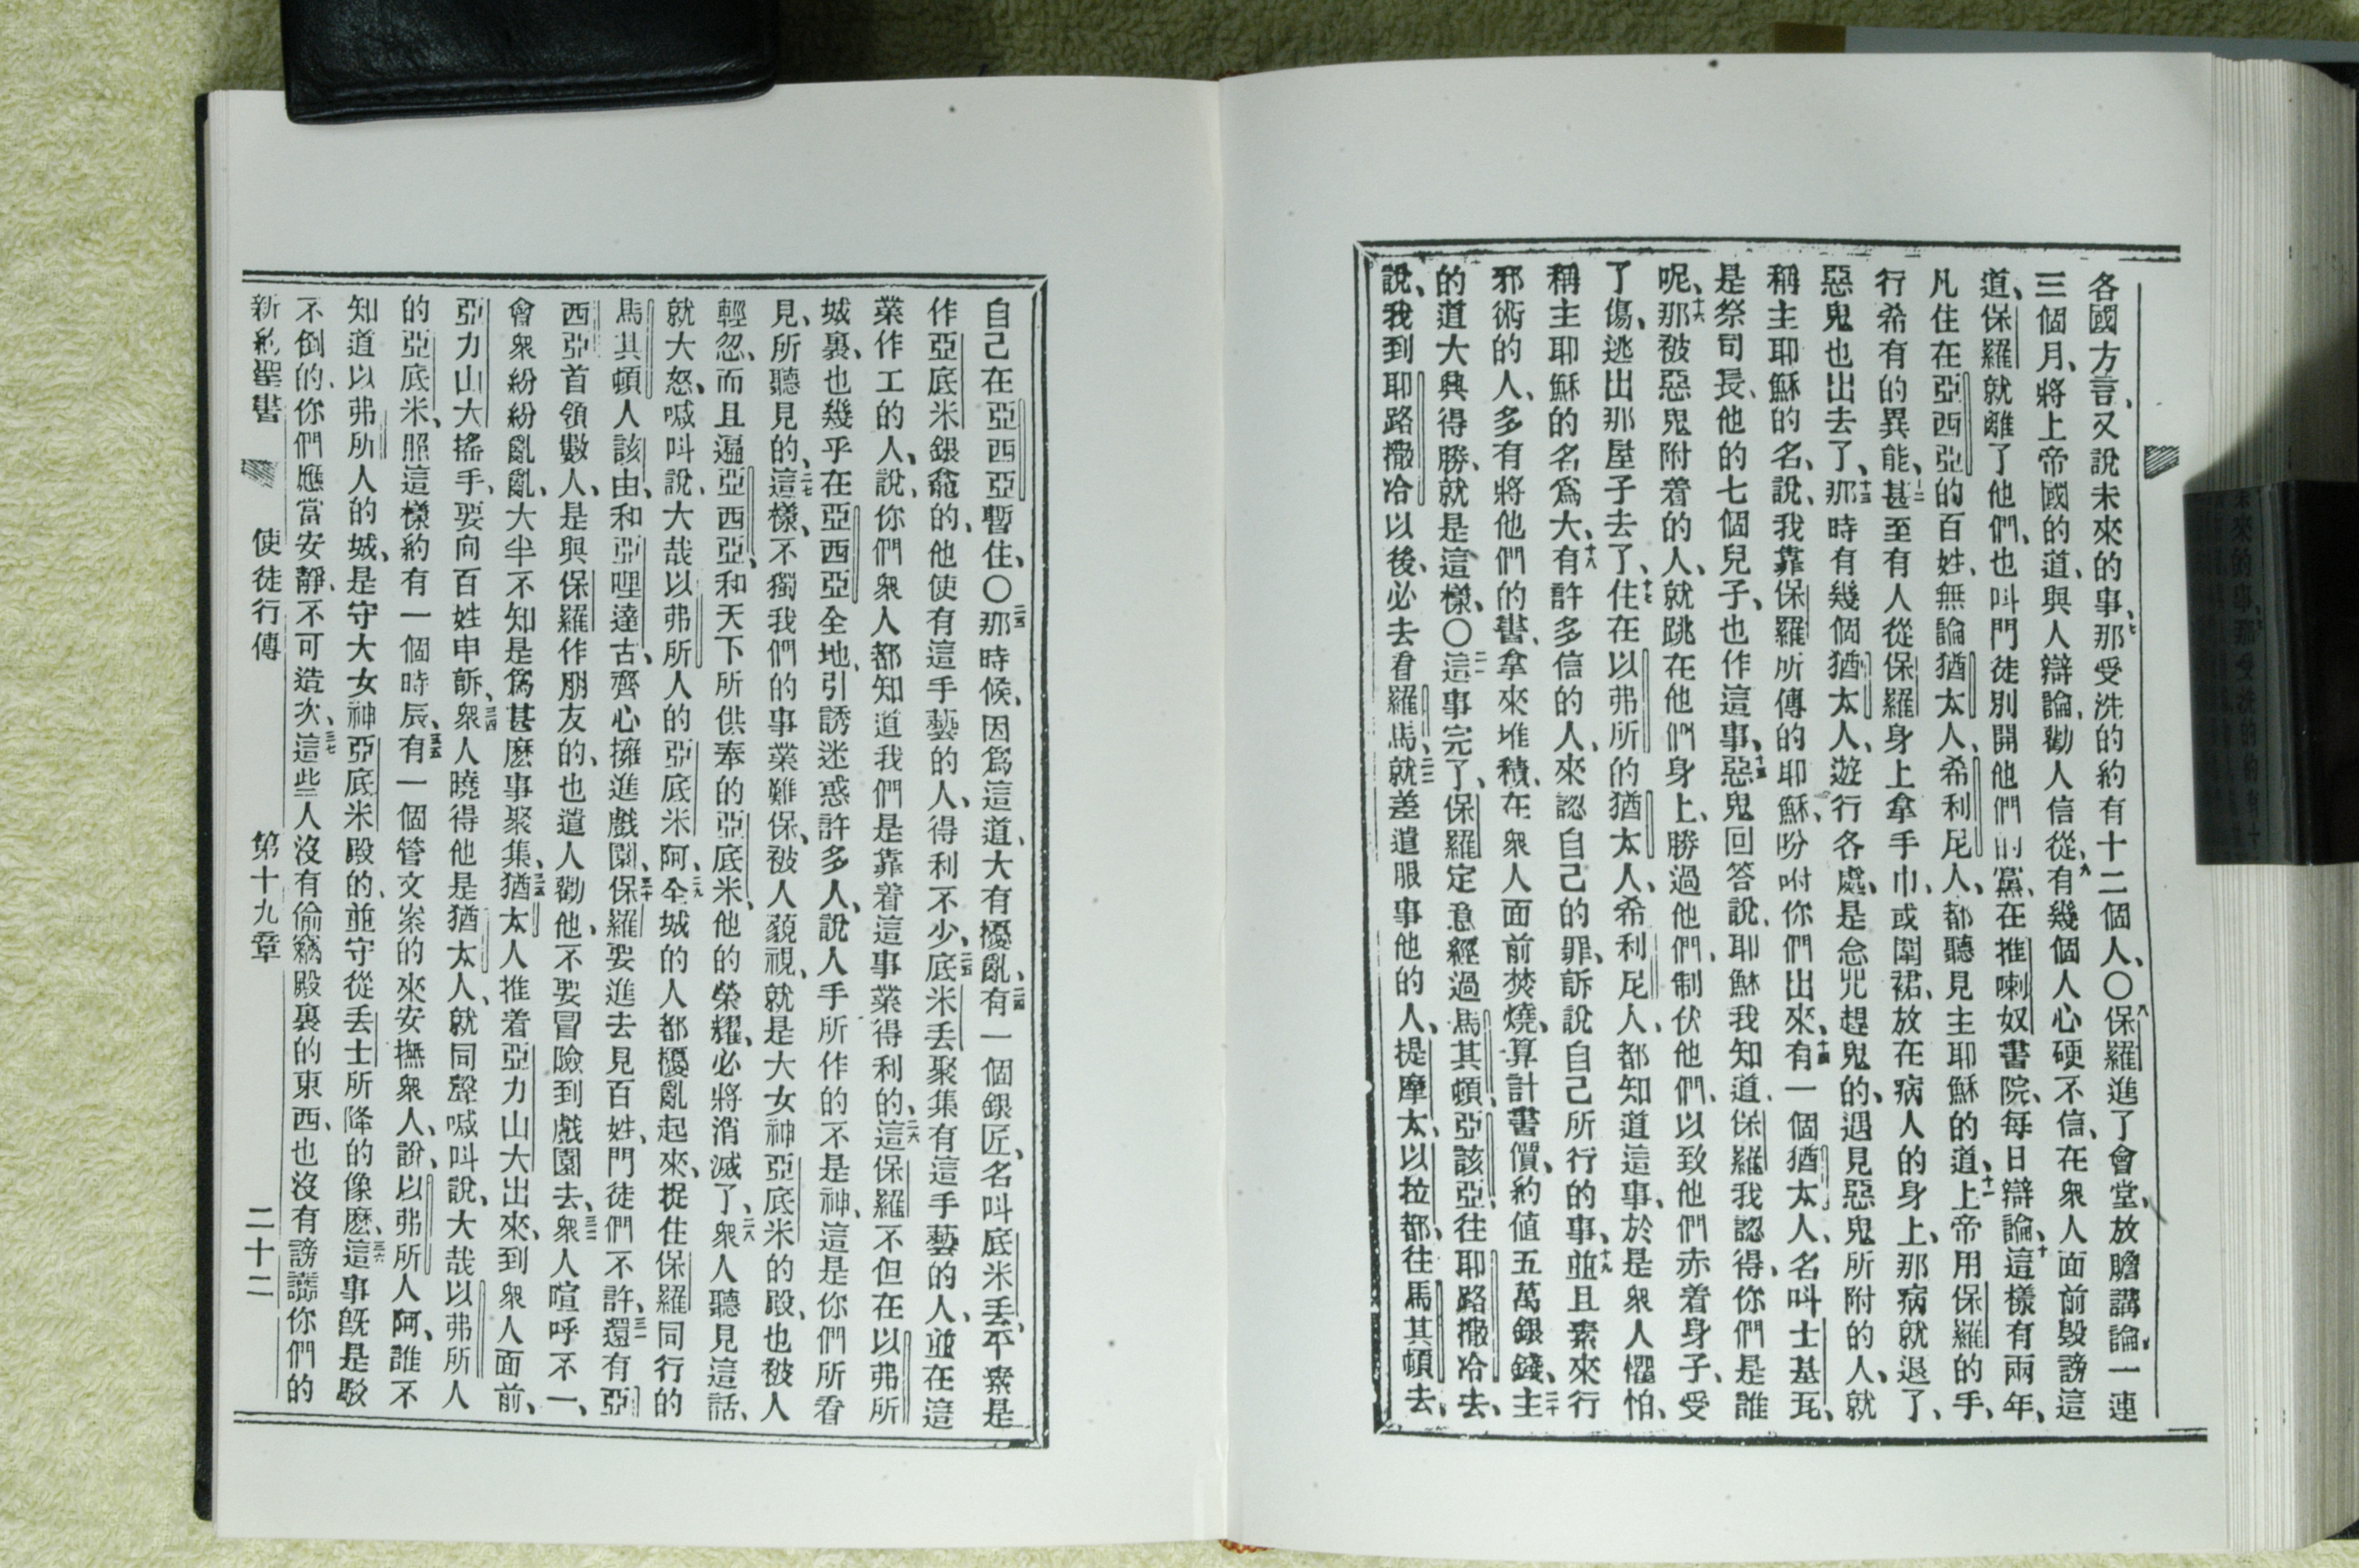 各國方言、又說未來的事、七那受洗的約有十二個人、〇八保羅進了會堂、放膽講論、一連
三個月、將上帝國的道、與人辯論、勸人信從、九有幾個人心硬不信、在衆人面前毀謗這
道、保羅就離了他們、也叫門徒別開他們的黨、在推喇奴書院、每日辯論、十這樣有兩年、
凡住在亞西亞的百姓、無論猶太人、希利尼人、都聽見主耶穌的道、十一上帝用保羅的手、
行希有的異能、十二甚至有人從保羅身上拿手巾、或圍裙、放在病人的身上、那病就退了、
惡鬼也出去了、十三那時有幾個猶太人、遊行各處、是念咒趕鬼的、遇見惡鬼所附的人、就
稱主耶穌的名、說、我靠保羅所傳的耶穌、吩咐你們出來、十四有一個猶太人、名叫士基瓦、
是祭司長、他的七個兒子、也作這事、十五惡鬼回答說、耶穌我知道、保羅我認得、你們是誰
呢、十六那被惡鬼附着的人、就跳在他們身上、勝過他們、制伏他們、以致他們赤着身子、受
了傷、逃出那屋子去了、十七住在以弗所的猶太人、希利尼人、都知道這事、於是衆人懼怕、
稱主耶穌的名爲大、十八有許多信的人、來認自己的罪、訴說自己所行的事、十九並且素來行
邪術的人、多有將他們的書、拿來堆積、在衆人面前焚燒、算計書價、約値五萬銀錢、二十主
的道大興得勝、就是這樣、〇二一這事完了、保羅定意經過馬其頓、亞該亞、往耶路撒冷去、
說、我到耶路撒冷以後、必去看羅馬、二二就差遣服事他的人、提摩太、以拉都、往馬其頓去、
自己在亞西亞暫住、〇二三那時候、因爲這道、大有擾亂、二四有一個銀匠、名叫底米丟、平素是
作亞底米銀龕的、他使有這手藝的人、得利不少、二五底米丟聚集有這手藝的人、並在這
業作工的人、說、你們衆人都知道我們是靠着這事業得利的、二六這保羅不但在以弗所
城裏、也幾乎在亞西亞全地、引誘迷惑許多人、說人手所作的不是神、這是你們所看
見、所聽見的、二七這樣、不獨我們的事業難保、被人藐視、就是大女神亞底米的殿、也被人
輕忽、而且遍亞西亞、和天下所供奉的亞底米、他的榮耀、必將消滅了、二八衆人聽見這話、
就大怒、喊叫說、大哉以弗所人的亞底米阿、二九全城的人都擾亂起來、捉住保羅同行的
馬其頓人該由、和亞哩達古、齊心擁進戲園、三十保羅要進去見百姓、門徒們不許、三一還有亞
西亞首領數人、是與保羅作朋友的、也遣人勸他、不要冒險到戲園去、三二衆人喧呼不一、
會衆紛紛亂亂、大半不知是爲甚麽事聚集、三三猶太人推着亞力山大出來、到衆人面前、
亞力山大搖手、要向百姓申訴、三四衆人曉得他是猶太人、就同聲喊叫說、大哉以弗所人
的亞底米、照這樣約有一個時辰、三五有一個管文案的來安撫衆人、說、以弗所人阿、誰不
知道以弗所人的城、是守大女神亞底米殿的、並守從丟士所降的像麽、三六這事旣是駁
不倒的、你們應當安靜、不可造次、三七這些人沒有偷竊殿裏的東西、也沒有謗讟你們的
新約聖書 使徒行傳 第十九章 二十二